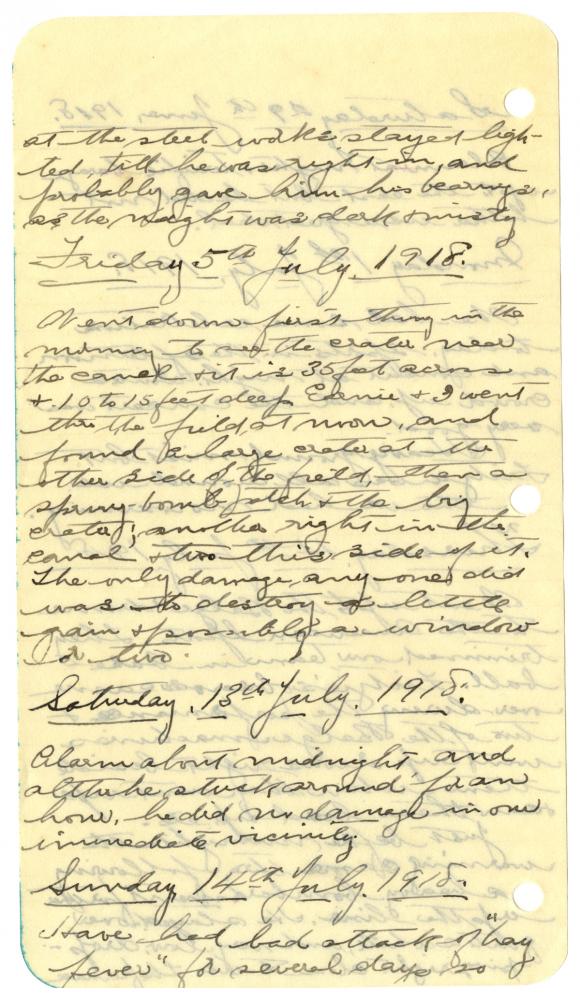 at the steel works, stayed ligh-
ted till he was right in, and
probably gave him his bearings,
as the night was dark & misty
Friday 5th July, 1918.
Went down first thing in the
morning to see the crater near
the canal & it is 35 feet across
& 10 to 15 feet deep. Ernie & I went
thro the field, at noon, and
found a large crater at the
other side of the field, then a
spring-bomb, & the big
crater; another right in the
canal & two this side of it.
The only damage, any one did
was to destroy a little
grain & possibly a window
or two.
Saturday, 13th July, 1918.
Alarm about midnight and
altho he stuck around for an
hour, he did no damage in our
immediate vicinity.
Sunday, 14th July, 1918.
Have had bad attack of "hay
fever" for several days, so